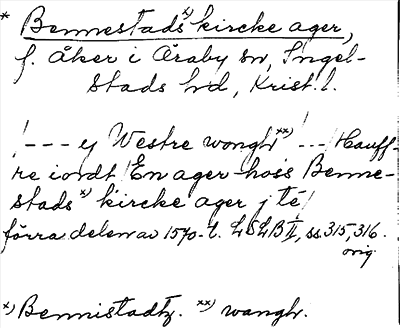 * Bennestads x) kircke ager,
f. åker i Araby sn, Ingel-
stads hd, Krist. l.
/--- y Westre wongh xx) --- / Hauff-
re iordt / En ager hoss Benne-
stads x) kircke ager j té/
förra delen av 1570-t. LSLB II, ss 315, 316.
orig.
x) Bennistadtz. xx) wangh.